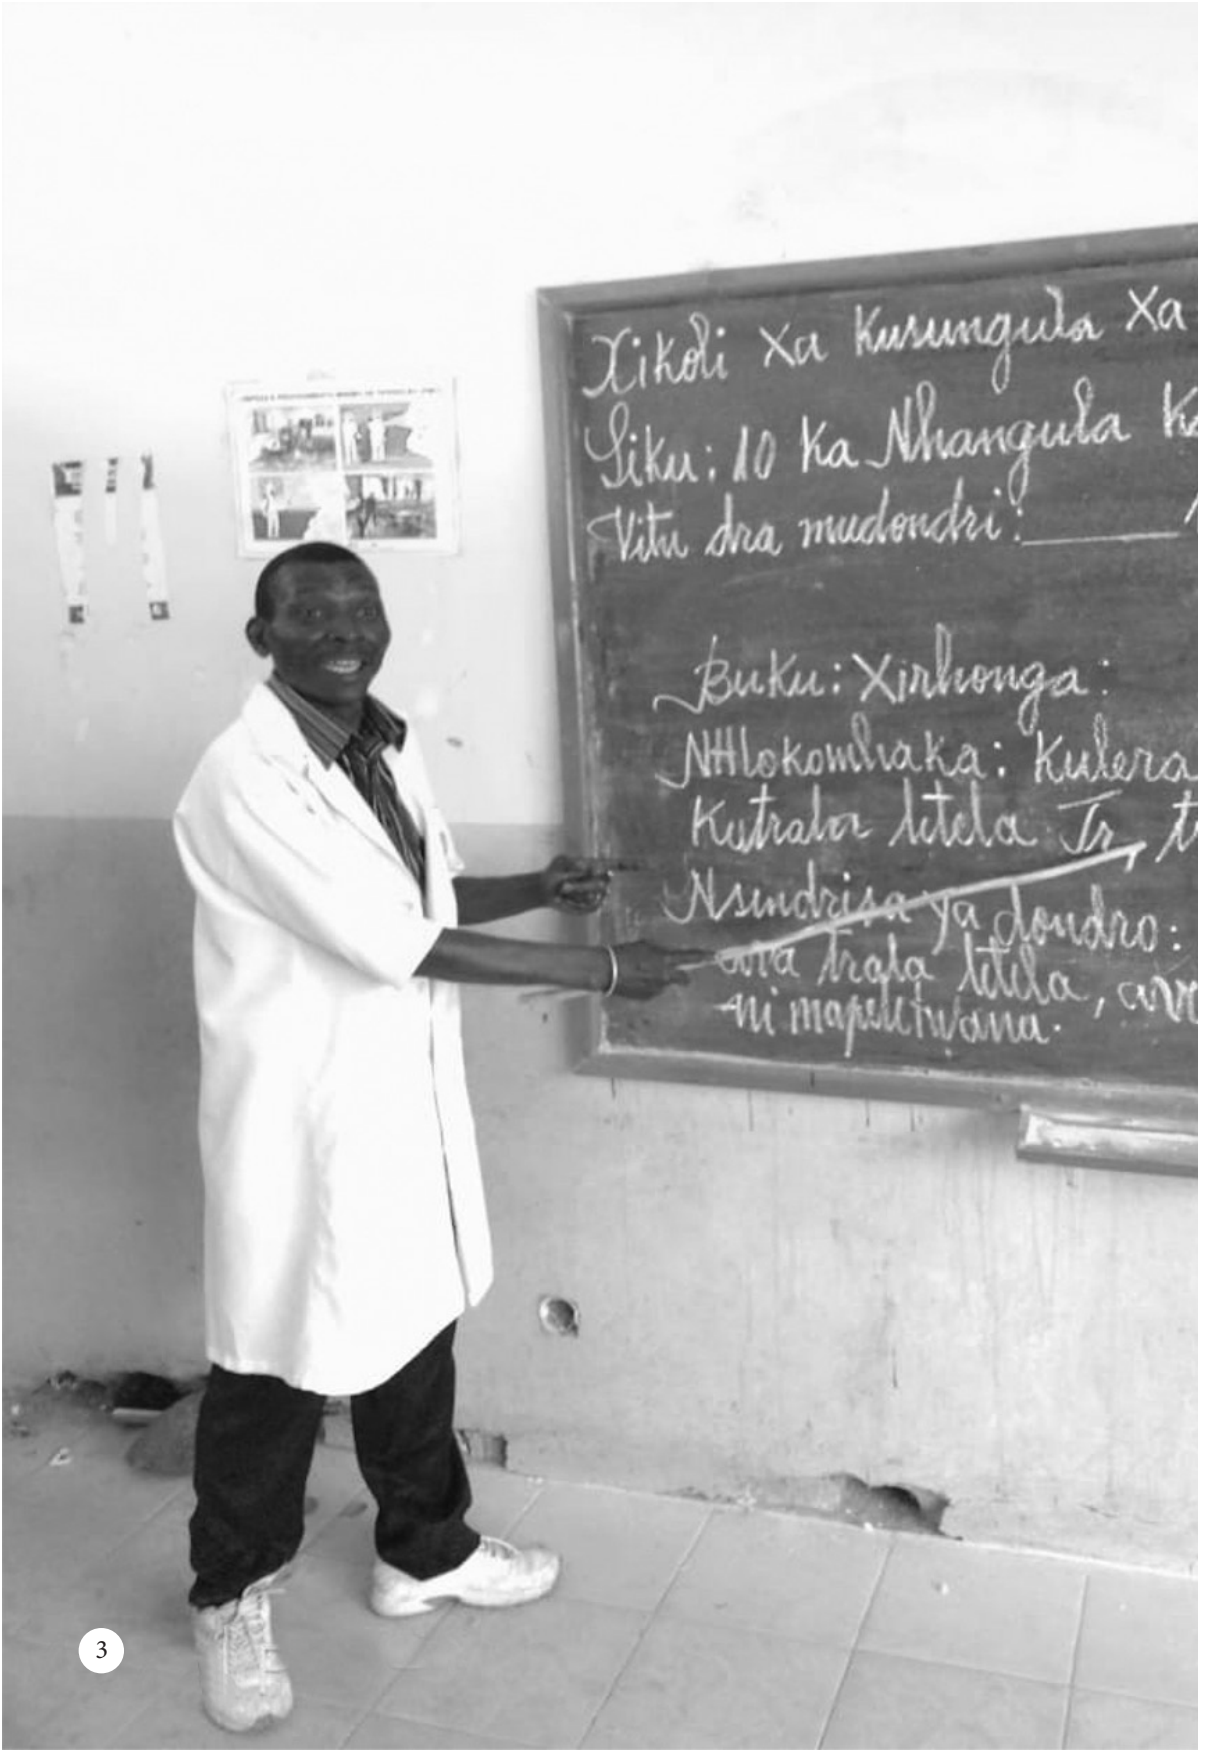 Xikoli Xa Kusungula Xa
Siku: 10 Ka Nhangula
Vitu dra mudondri:
Buku: Xirhonga:
NHlokomhaka: Kulera
Kutrala litela Tr,
Nsindrisa ya dondro:
trala litela,
ni mapeletwana.
3